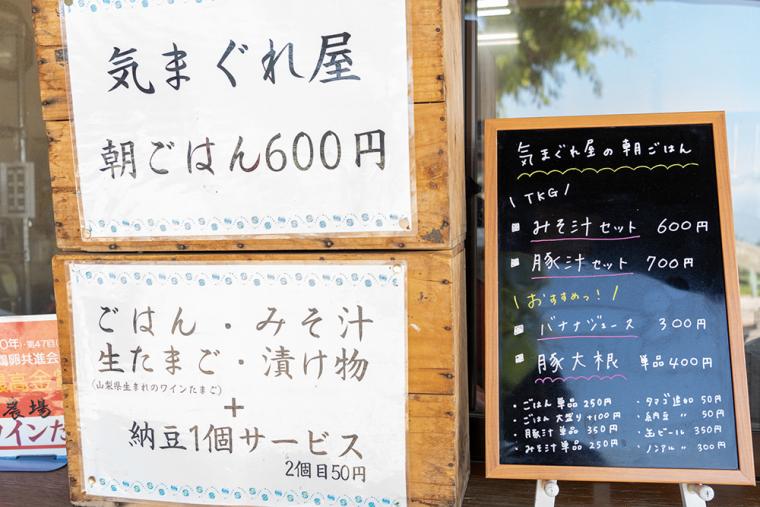 気まぐれ屋
朝ごはん600円
ごはん・みそ汁
生たまご・漬け物
(山梨県生まれのワインたまご)
+
納豆1個サービス
2個目50円
0年)・第47回
鶏卵共進会
最高金
農場
ワインた
気まぐれ屋の朝ごはん
\ TKG /
みそ汁セット 600円
豚汁セット 700円
\ おすすめっ! /
バナナジュース 300円
豚大根 単品400円
・ごはん 単品 250円
・ごはん 大盛り +100円
・豚汁 単品 350円
・みそ汁 単品 250円
・タマゴ追加 50円
・納豆 〃 50円
・缶ビール 350円
・ノンアル 〃 300円